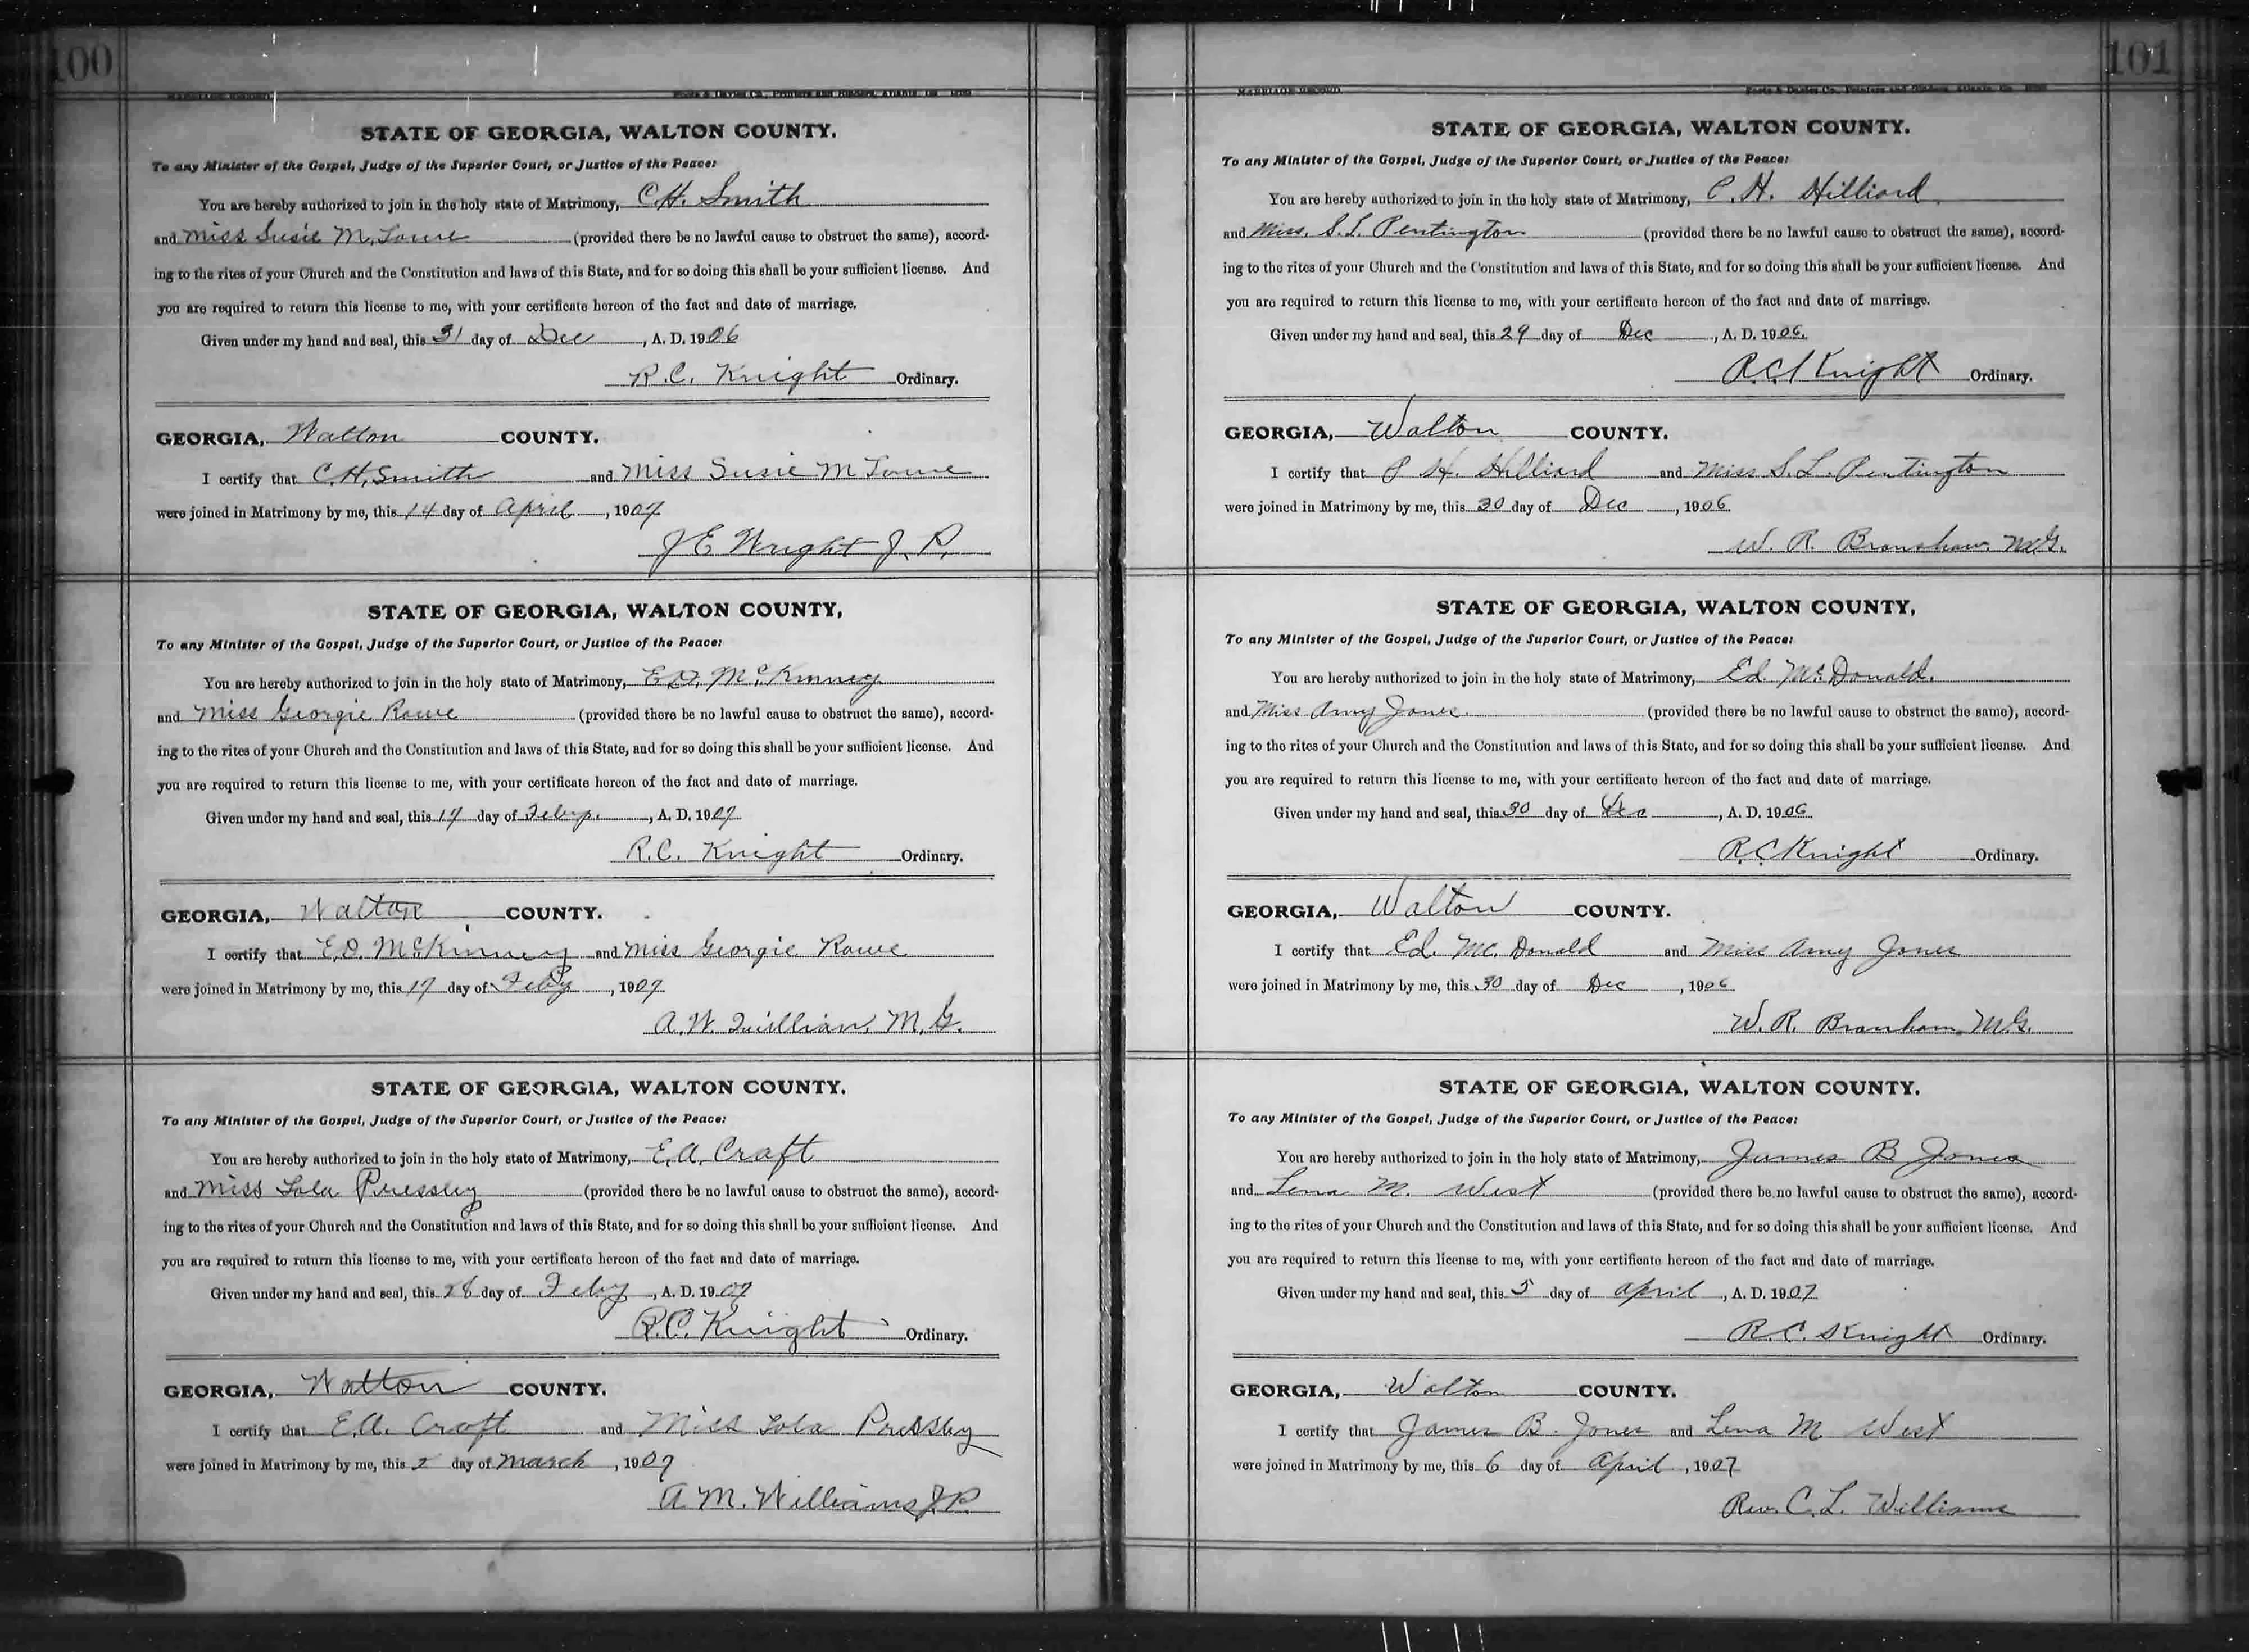 100
MARRIAGE RECORD. Foote & Davies Co., Printers and Binders, Atlanta, Ga.
STATE OF GEORGIA, WALTON COUNTY.
To any Minister of the Gospel, Judge of the Superior Court, or Justice of the Peace:
You are hereby authorized to join in the holy state of Matrimony, C.H. Smith
and Miss Susie M. Lowe (provided there be no lawful cause to obstruct the same), accord-
ing to the rites of your Church and the Constitution and laws of this State, and for so doing this shall be your sufficient license. And
you are required to return this license to me, with your certificate hereon of the fact and date of marriage.
Given under my hand and seal, this 31 day of Dec, A. D. 1906
R.C. Knight Ordinary.
GEORGIA, Walton COUNTY.
I certify that C.H. Smith and Miss Susie M Lowe
were joined in Matrimony by me, this 14 day of April, 1907
J E Wright J. P.
STATE OF GEORGIA, WALTON COUNTY,
To any Minister of the Gospel, Judge of the Superior Court, or Justice of the Peace:
You are hereby authorized to join in the holy state of Matrimony, E.D. McKinney
and Miss Georgie Rowe (provided there be no lawful cause to obstruct the same), accord-
ing to the rites of your Church and the Constitution and laws of this State, and for so doing this shall be your sufficient license. And
you are required to return this license to me, with your certificate hereon of the fact and date of marriage.
Given under my hand and seal, this 17 day of Feby., A. D. 1907
R.C. Knight Ordinary.
GEORGIA, Walton COUNTY.
I certify that E.D. McKinney and Miss Georgie Rowe
were joined in Matrimony by me, this 17 day of Feby, 1907
A.W. Quillian, M.G.
STATE OF GEORGIA, WALTON COUNTY.
To any Minister of the Gospel, Judge of the Superior Court, or Justice of the Peace:
You are hereby authorized to join in the holy state of Matrimony, E.A. Craft
and Miss Lola Pressley (provided there be no lawful cause to obstruct the same), accord-
ing to the rites of your Church and the Constitution and laws of this State, and for so doing this shall be your sufficient license. And
you are required to return this license to me, with your certificate hereon of the fact and date of marriage.
Given under my hand and seal, this 28 day of Feby, A. D. 1907
R.C. Knight Ordinary.
GEORGIA, Walton COUNTY.
I certify that E.A. Croft and Miss Lola Pressley
were joined in Matrimony by me, this 2 day of March, 1907
A. M. Williams J.P.
101
MARRIAGE RECORD. Foote & Davies Co., Printers and Binders, Atlanta, Ga.
STATE OF GEORGIA, WALTON COUNTY.
To any Minister of the Gospel, Judge of the Superior Court, or Justice of the Peace:
You are hereby authorized to join in the holy state of Matrimony, P. H. Hilliard
and Miss. S. L. Pentington (provided there be no lawful cause to obstruct the same), accord-
ing to the rites of your Church and the Constitution and laws of this State, and for so doing this shall be your sufficient license. And
you are required to return this license to me, with your certificate hereon of the fact and date of marriage.
Given under my hand and seal, this 29 day of Dec, A. D. 1906.
R.C. Knight Ordinary.
GEORGIA, Walton COUNTY.
I certify that P H. Hilliard and Miss S. L. Pentington
were joined in Matrimony by me, this 30 day of Dec, 1906
W. R. Branshaw. M.G.
STATE OF GEORGIA, WALTON COUNTY,
To any Minister of the Gospel, Judge of the Superior Court, or Justice of the Peace:
You are hereby authorized to join in the holy state of Matrimony, Ed. McDonald.
and Miss Amy Jones. (provided there be no lawful cause to obstruct the same), accord-
ing to the rites of your Church and the Constitution and laws of this State, and for so doing this shall be your sufficient license. And
you are required to return this license to me, with your certificate hereon of the fact and date of marriage.
Given under my hand and seal, this 30 day of Dec, A. D. 1906
R.C. Knight Ordinary.
GEORGIA, Walton COUNTY.
I certify that Ed. Mc. Donald and Miss Amy Jones
were joined in Matrimony by me, this 30 day of Dec, 1906
W. R. Branham M.G.
STATE OF GEORGIA, WALTON COUNTY.
To any Minister of the Gospel, Judge of the Superior Court, or Justice of the Peace:
You are hereby authorized to join in the holy state of Matrimony, James B Jones
and Lena M. West (provided there be no lawful cause to obstruct the same), accord-
ing to the rites of your Church and the Constitution and laws of this State, and for so doing this shall be your sufficient license. And
you are required to return this license to me, with your certificate hereon of the fact and date of marriage.
Given under my hand and seal, this 5 day of April, A. D. 1907
R. C. Knight Ordinary.
GEORGIA, Walton COUNTY.
I certify that James B. Jones and Lena M West
were joined in Matrimony by me, this 6 day of April, 1907
Rev. C. L. Williams